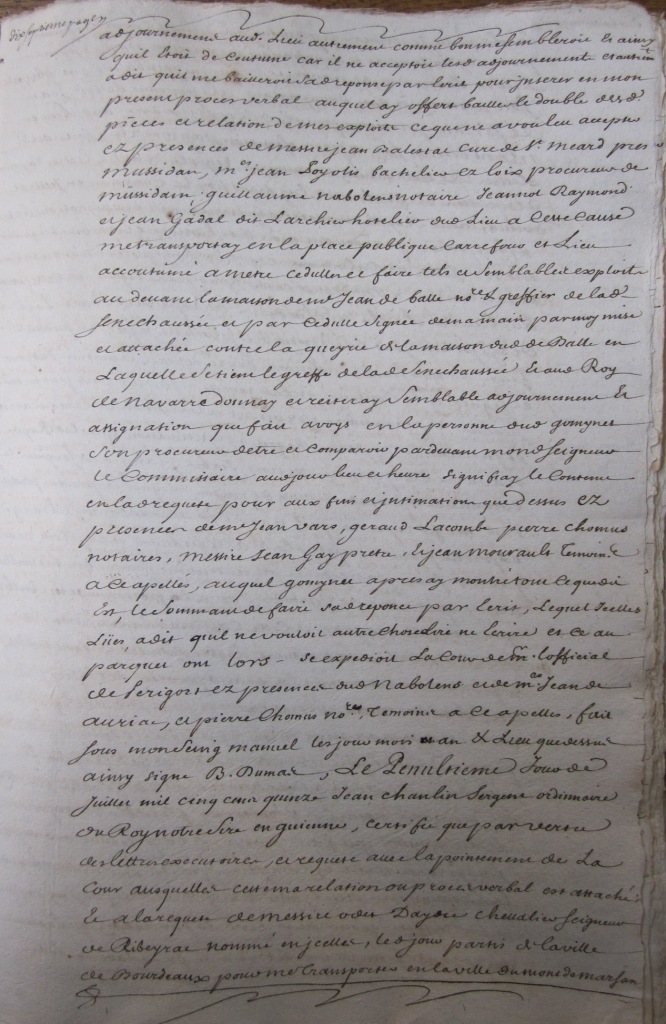 dixseptieme page
adjournement aud. Lieu autrement comme bon me sembleroit Et ainsy
quil Etoit de Coutume car il ne acceptoit lesd adjournement et
a dit quil me bailleroit sa reponse par Ecrit pour inserer en mon
present proces verbal auquel ay offert bailler le double desd
pieces et relation de mes exploits ce que ne a voulu accepter
ez presences de messire jean Balestat Curé de St. Meard pres
mussidan, me. jean Loyotis bachelier ez loix procureur de
mussidan, guillaume nabolens notaire Jeannot Raymond
et jean Gadal dit Larchier hotelier dud Lieu a Cette Cause
me transportay en la place publique Carrefour et Lieu
accoutumé a metre Cedulles et faire tels et semblables exploits
au devant la maison de me Jean de balle nore & greffier de lad
Senechaussée et par Cedulle signée de ma main par moy mise
et attachée contre la
de la maison dud de Balle en
Laquelle se tient le greffe de lad Senechaussée Et aud Roy
de navarre donnay et reiteray semblable adjournement Et
assignation que fait avoys en la personne dud gomynet
son procureur detre et Comparoir pardevant mond seigneur
le Commissaire aud jour lieu et heure signifiay le Contenu
en lad requete pour aux fins et intimation que dessus ez
presences de me Jean vars, geraud Lacombe pierre Chomus
notaires, messire Jean Gay pretre, et jean mourault Temoins
a ce apellés, auquel gomynet apres ay montré tout ce que dit
Est, le sommant de faire sa reponce par Ecrit, Lequel Icelles
Lües, a dit quil ne vouloit autre Chose dire ne Ecrire et ce au
parquet ont lors se expedioit La Cour de Mr. l'official
de Perigort ez presences dud Nabolens et de me Jean de
auriac, et pierre Chomus nores, Temoins a ce apelles, fait
sous mon seing manuel les jour mois an & Lieu que dessus
ainsy signé B. Dumas, Le Penultieme Jour de
Juillet mil cinq cens quinze Jean chanlin sergent ordinnaire
du Roy notre sire en guienne, certiffie que par vertu
des lettres executoires, et requete avec lapointement de La
Cour ausquelles cette ma relation ou proces verbal est attaché
Et a la requete de messire odet Daydie chevallier seigneur
de Ribeyrac nommé en jcelles, led jour partis de la ville
de Bourdeaux pour me transporter en la ville du mont de marsan